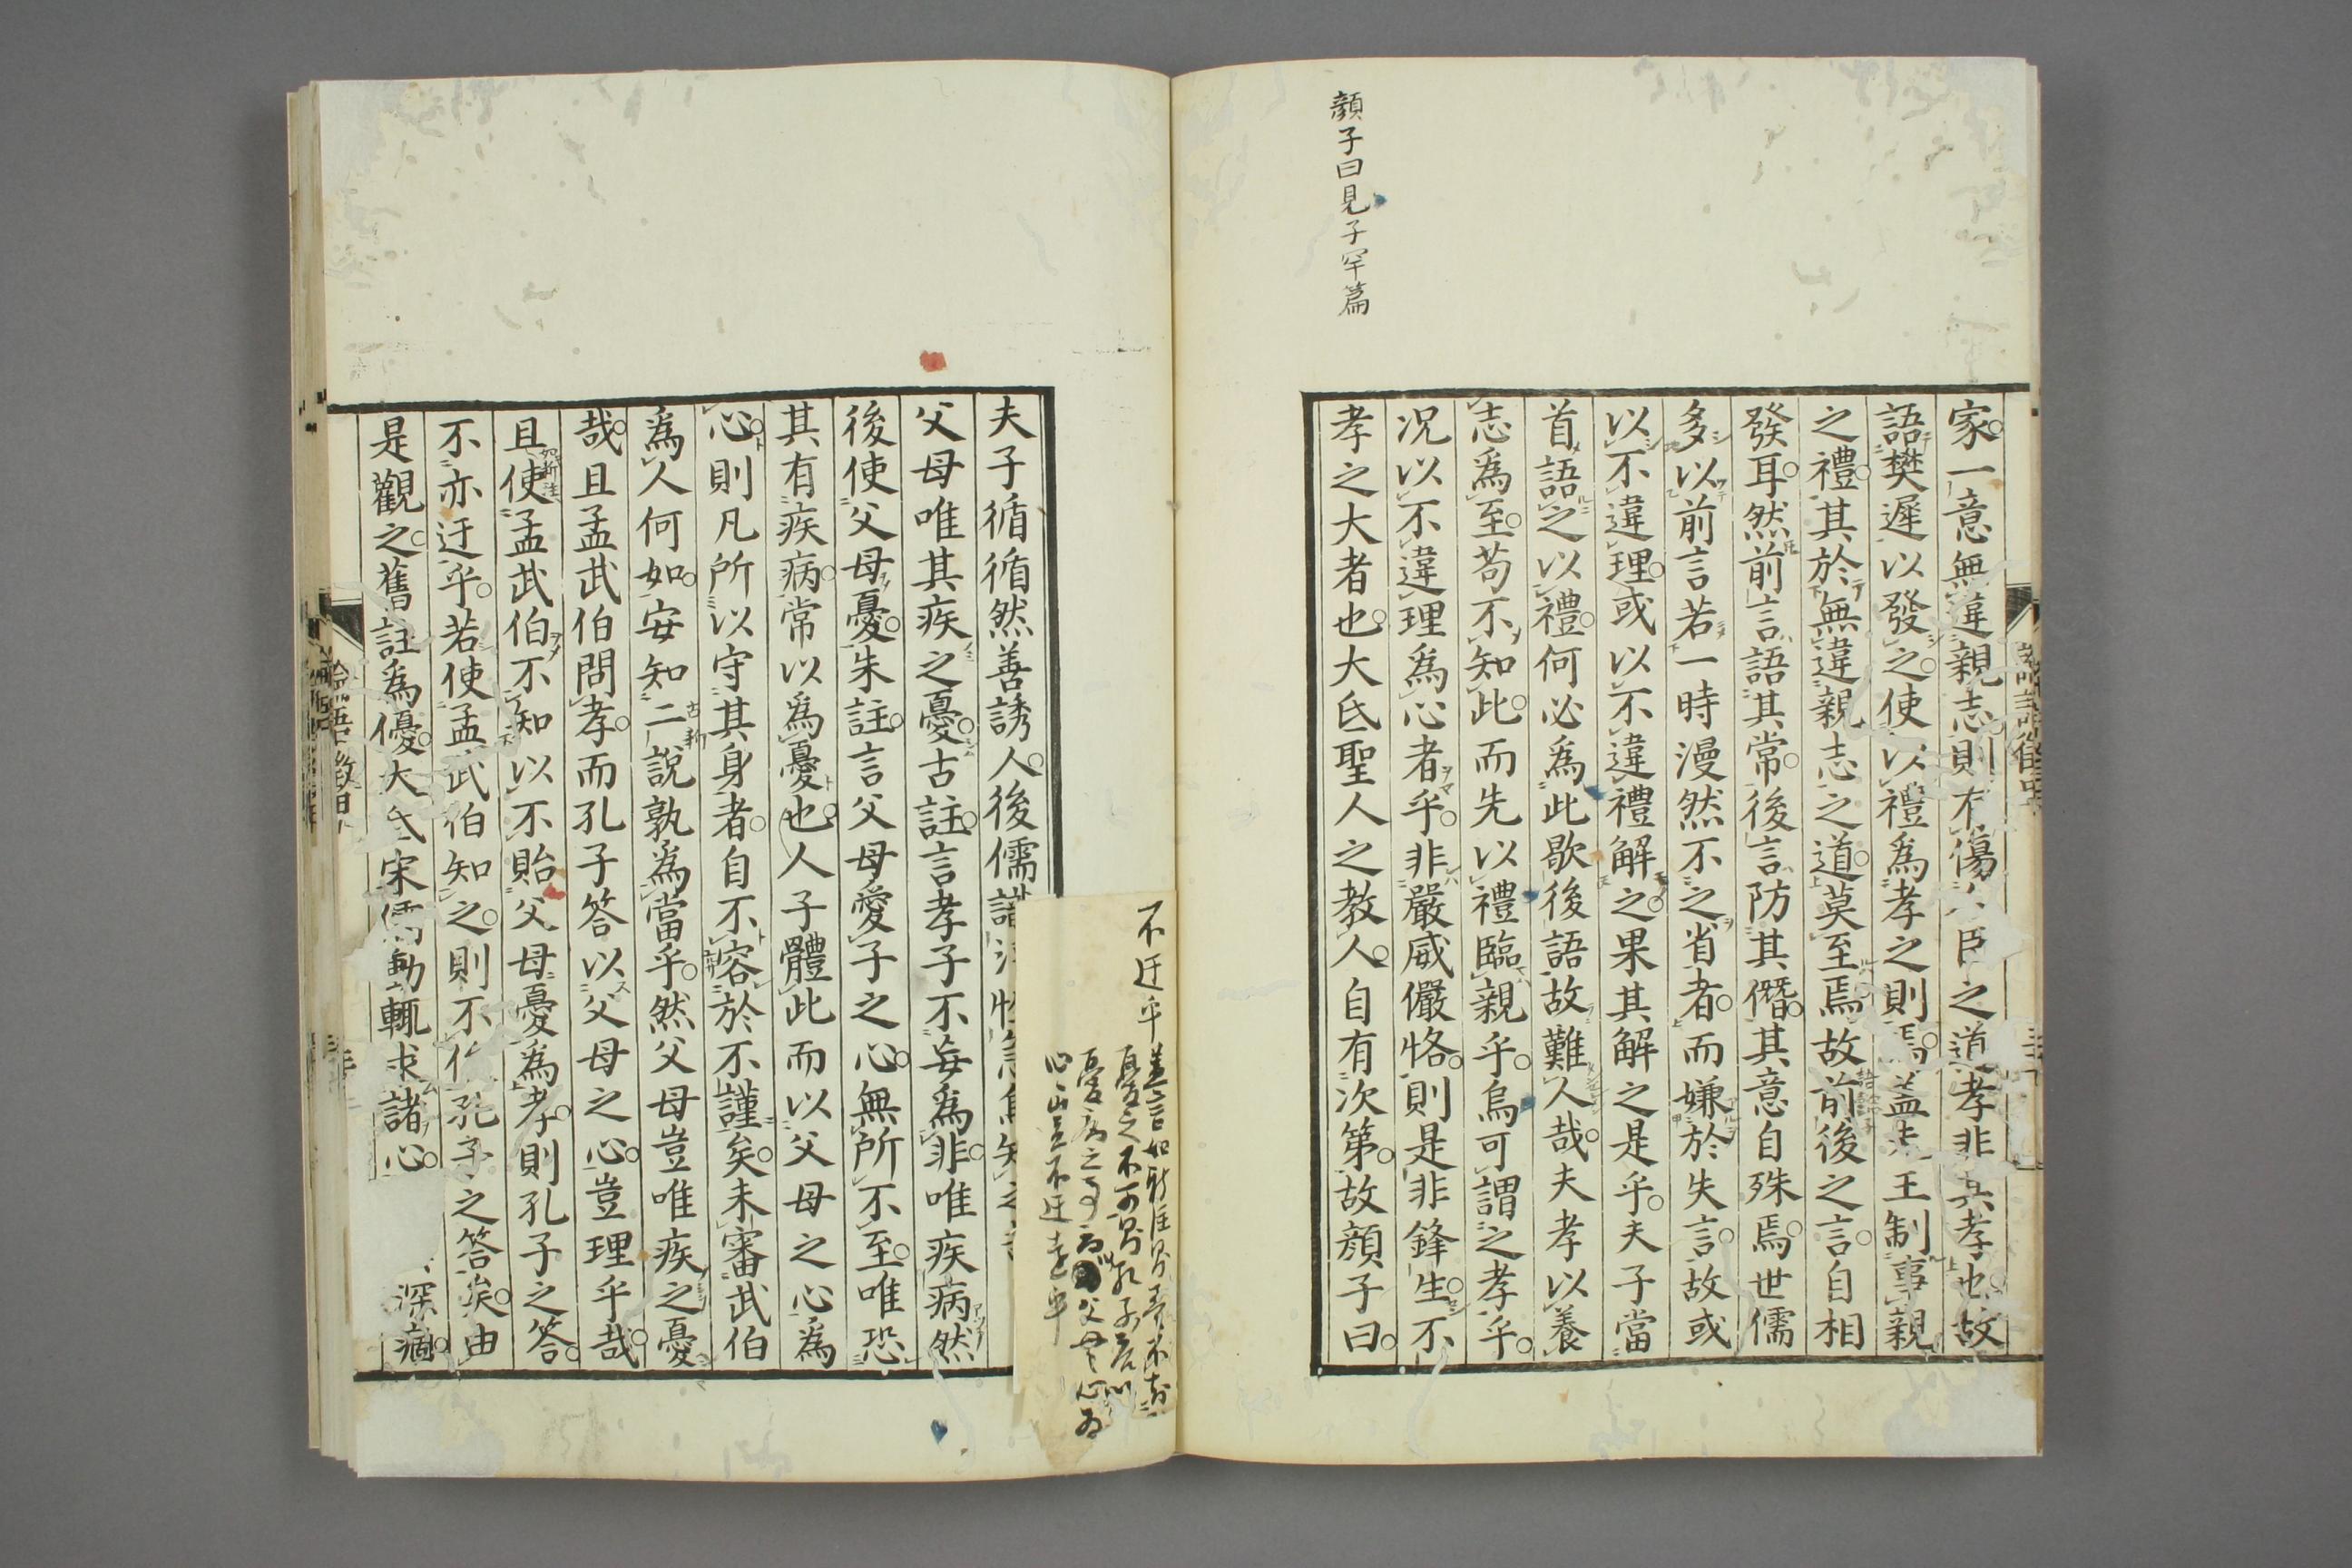 顔子曰見子罕篇
家一意無違親志則有傷臣之道孝非其孝也故
語樊遲以發之使以禮爲孝之則焉蓋先王制事親
之禮其於無違親志之道莫至焉故前後之言自相
發耳然前言語其常後言防其僭其意自殊焉世儒
多以前言若一時漫然不之省者而嫌於失言故或
以不違理或以不違禮解之果其解之是乎夫子當
首語之以禮何必爲此歇後語故難人哉夫孝以養
志爲至苟不知此而先以禮臨親乎烏可謂之孝乎
況以不違理爲心者乎非嚴威儼恪則是非鋒生不
孝之大者也大氐聖人之教人自有次第故顔子曰
夫子循循然善誘人後儒
父母唯其疾之憂古註言孝子不妄爲非唯疾病然
後使父母憂朱註言父母愛子之心無所不至唯恐
其有疾病常以爲憂也人子體此而以父母之心爲
心則凡所以守其身者自不容於不謹矣未審武伯
爲人何如安知二說孰爲當乎然父母豈唯疾之憂
哉且孟武伯問孝而孔子答以父母之心豈理乎哉
且使孟武伯不知以不貽父母憂爲孝則孔子之答
不亦迂乎若使孟武伯知之則不孔子之答矣由
是觀之舊註爲優大氐宋儒動輒求諸心深
不迂乎
憂之不可
心豈不迂遠乎